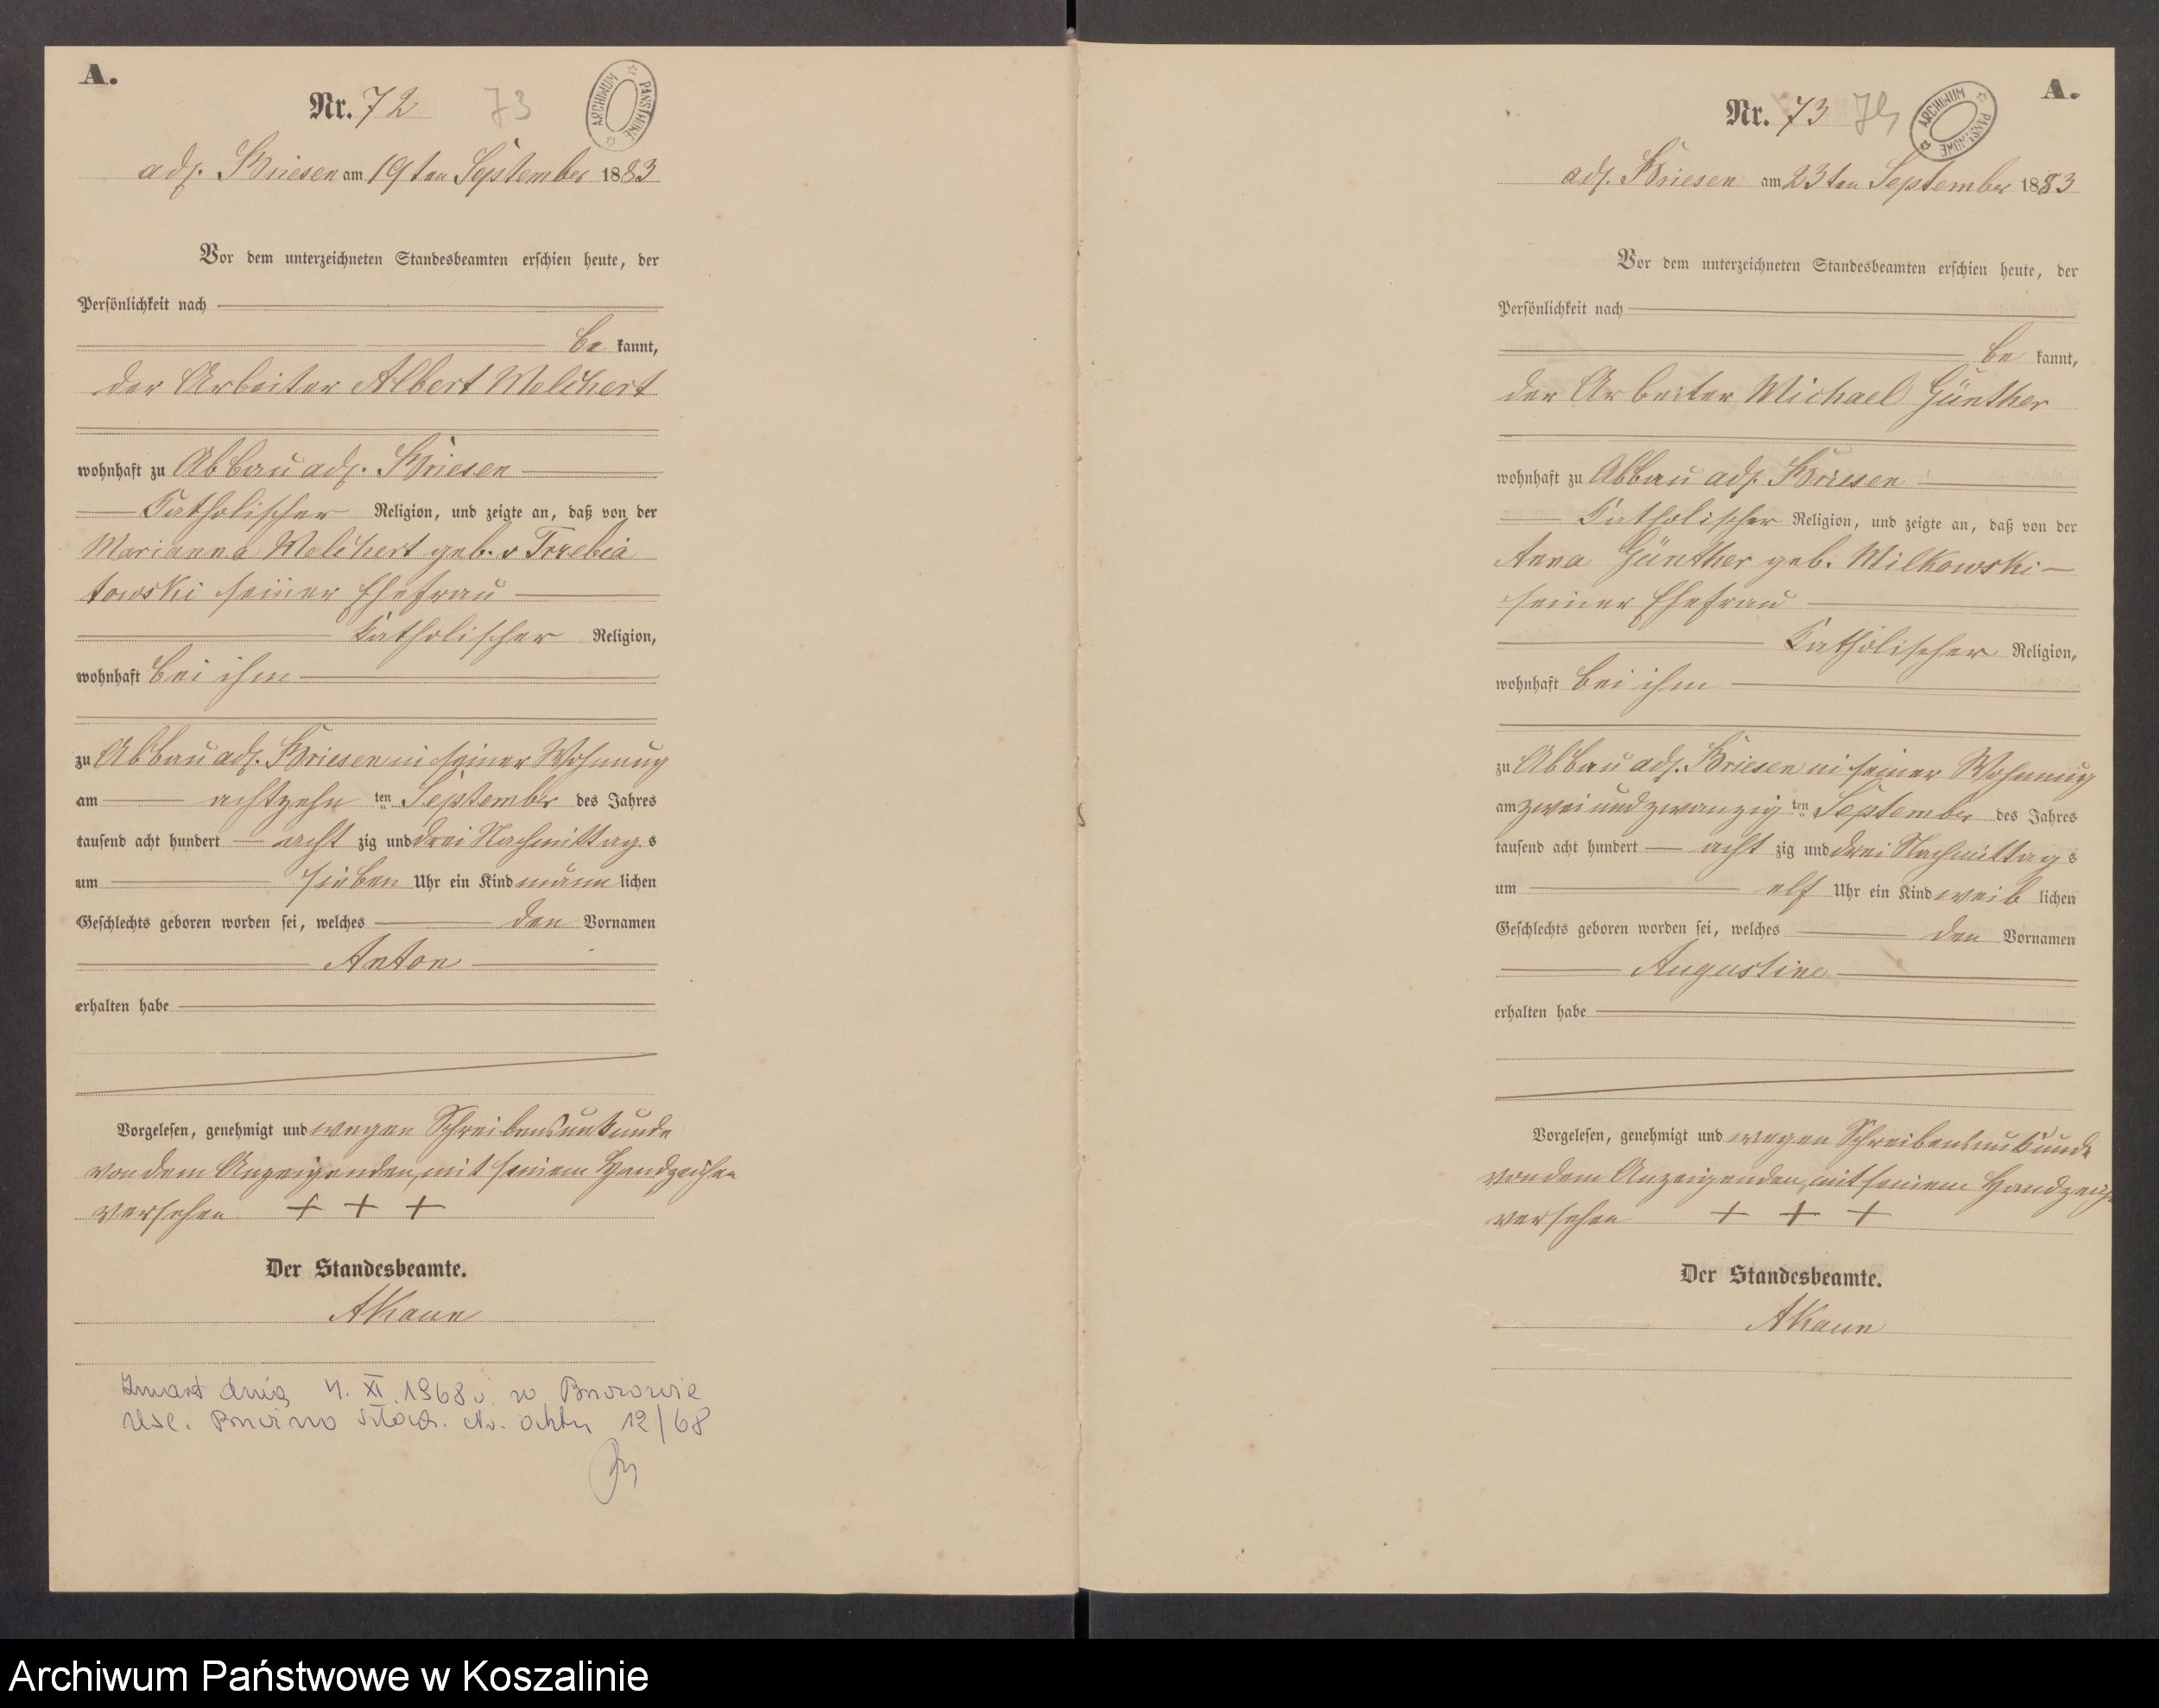 A.
Nr. 72
73
ARCHIWUM PAŃSTWOWE
adl. Briesen am 19ten September 1883
Vor dem unterzeichneten Standesbeamten erschien heute, der
Persönlichkeit nach
be kannt,
der Arbeiter Albert Melchert
wohnhaft zu Abbau adl. Briesen
Katholischer Religion, und zeigte an, daß von der
Marianna Melchert geb. v Trzebia
towski seiner Ehefrau
Katholischer Religion,
wohnhaft bei ihm
zu Abbau adl. Briesen in seiner Wohnung
am achtzehn ten September des Jahres
tausend acht hundert acht zig und drei Nachmittag s
um sieben Uhr ein Kind männ lichen
Geschlechts geboren worden sei, welches den Vornamen
Anton
erhalten habe
Vorgelesen, genehmigt und wegen Schreibensunkunde
von dem Anzeigenden, mit seinem Handzeichen
versehen + + +
Der Standesbeamte.
AKaun
Zmarł dnia 4. XI. 1968 r. w
USC. Nr. aktu 12/68
A.
Nr. 73
74
ARCHIWUM PAŃSTWOWE
adl. Briesen am 23ten September 1883
Vor dem unterzeichneten Standesbeamten erschien heute, der
Persönlichkeit nach
be kannt,
der Arbeiter Michael Günther
wohnhaft zu Abbau adl. Briesen
Katholischer Religion, und zeigte an, daß von der
Anna Günther geb. Milkowski
seiner Ehefrau
Katholischer Religion,
wohnhaft bei ihm
zu Abbau adl. Briesen in seiner Wohnung
am zwei und zwanzig ten September des Jahres
tausend acht hundert acht zig und drei Nachmittag s
um elf Uhr ein Kind weib lichen
Geschlechts geboren worden sei, welches den Vornamen
Augustine
erhalten habe
Vorgelesen, genehmigt und wegen Schreibensunkunde
von dem Anzeigenden, mit seinem Handzeich
versehen + + +
Der Standesbeamte.
AKaun
Archiwum Państwowe w Koszalinie